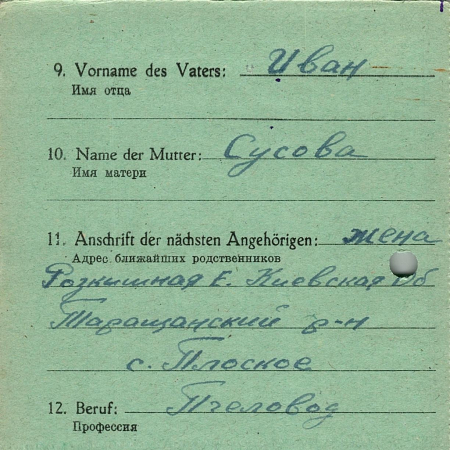 9. Vorname des Vaters: Иван
Имя отца
10. Name der Mutter: Сусова
Имя матери
11. Anschrift der nächsten Angehörigen: жена
Адрес ближайших родственников
Розкишная Е. Киевская Об
Таращанский р-н
с. Плоское
12. Beruf: Пчеловод
Профессия